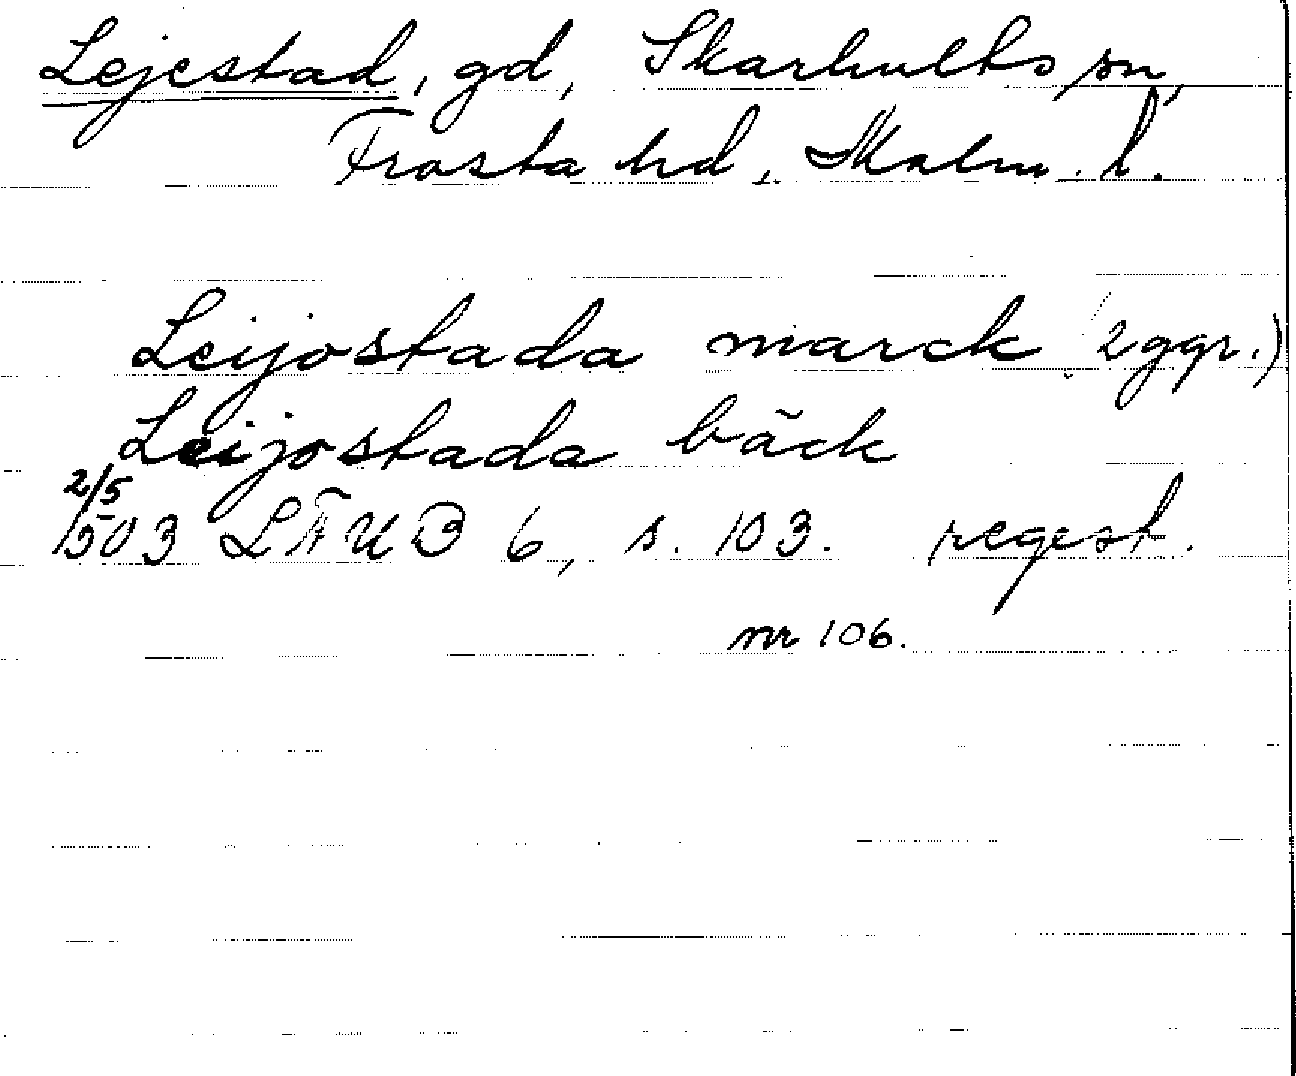 Lejestad, gd, Skarhults sn,
Frosta hd, Malm. l.
Leijostada marck (2 ggr.)
Leijostada bäck
2/5
1503 LÄUB 6, s. 103. regest.
nr 106.